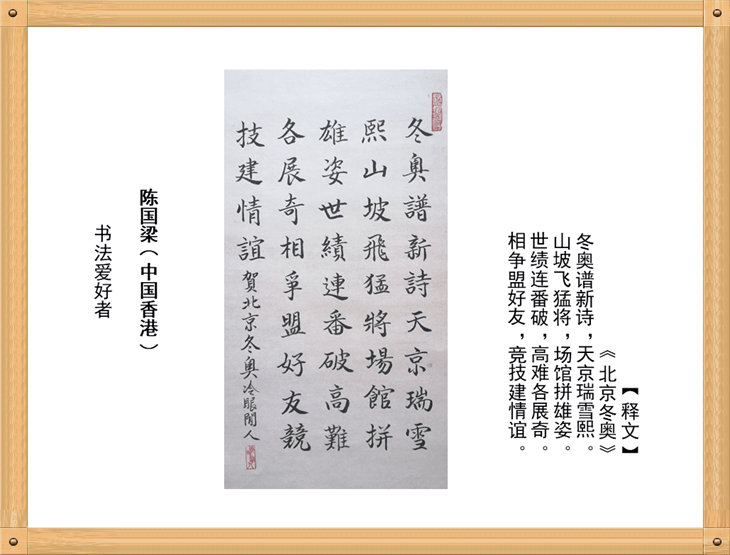 【释文】
《北京冬奥》
冬奥谱新诗，天京瑞雪熙。
山坡飞猛将，场馆拼雄姿。
世绩连番破，高难各展奇。
相争盟好友，竞技建情谊。
冬奥譜新詩天京瑞雪
熙山坡飛猛將場館拼
雄姿世績連番破高難
各展奇相爭盟好友競
技建情誼賀北京冬奥冷眼閒人
陈国梁（中国香港）
书法爱好者